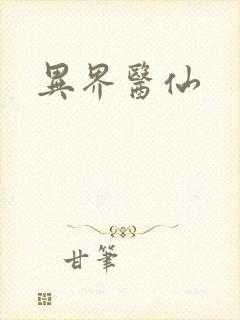 異界醫仙
甘筆